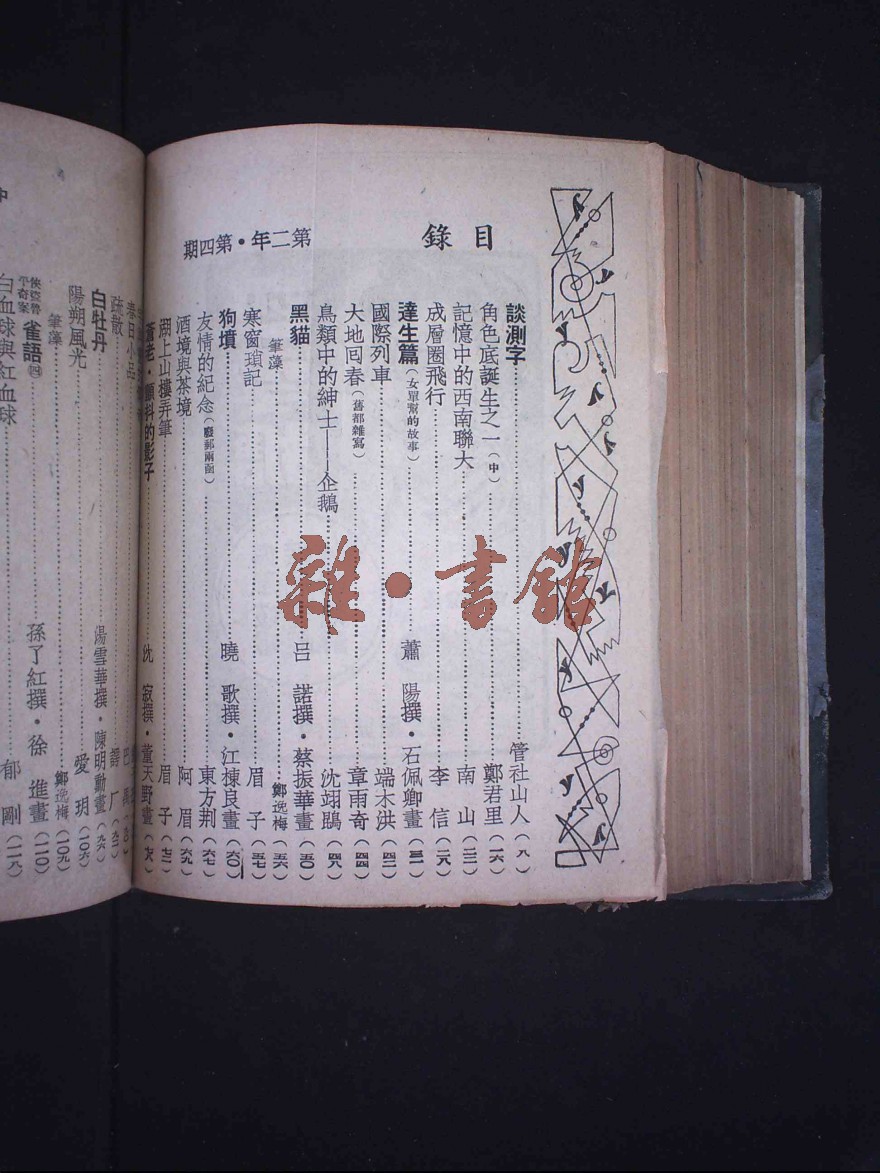 目錄
第二年・第四期
談測字 管社山人（八）
角色底誕生之一（中） 鄭君里（一六）
記憶中的西南聯大 南山（二三）
成層圈飛行 李信（二八）
達生篇（女單幫的故事） 蕭陽撰・石佩卿畫（三一）
國際列車 端木洪（四二）
大地回春（舊都雜寫） 章雨奇（四四）
鳥類中的紳士——企鵝 沈翊鵾（四八）
黑貓 呂諾撰・蔡振華畫（五〇）
筆藻 鄭逸梅（五六）
寒窗瑣記 眉子（五七）
狗墳 曉歌撰・江棟良畫（六〇）
友情的紀念（廢郵兩函） 東方荆（六七）
酒境與茶境 阿眉（六九）
湖上山樓弄筆 眉子（七三）
蕭老・顫抖的影子 沈寂撰・董天野畫（七六）
春日小品
疏散
白牡丹 湯雪華撰・陳明勳畫（九六）
陽朔風光 愛玥（一〇六）
筆藻 鄭逸梅（一〇九）
俠盜魯平奇案 雀語（四） 孫了紅撰・徐進畫（一一〇）
白血球與紅血球 郁剛（一一八）
中
雜・書館